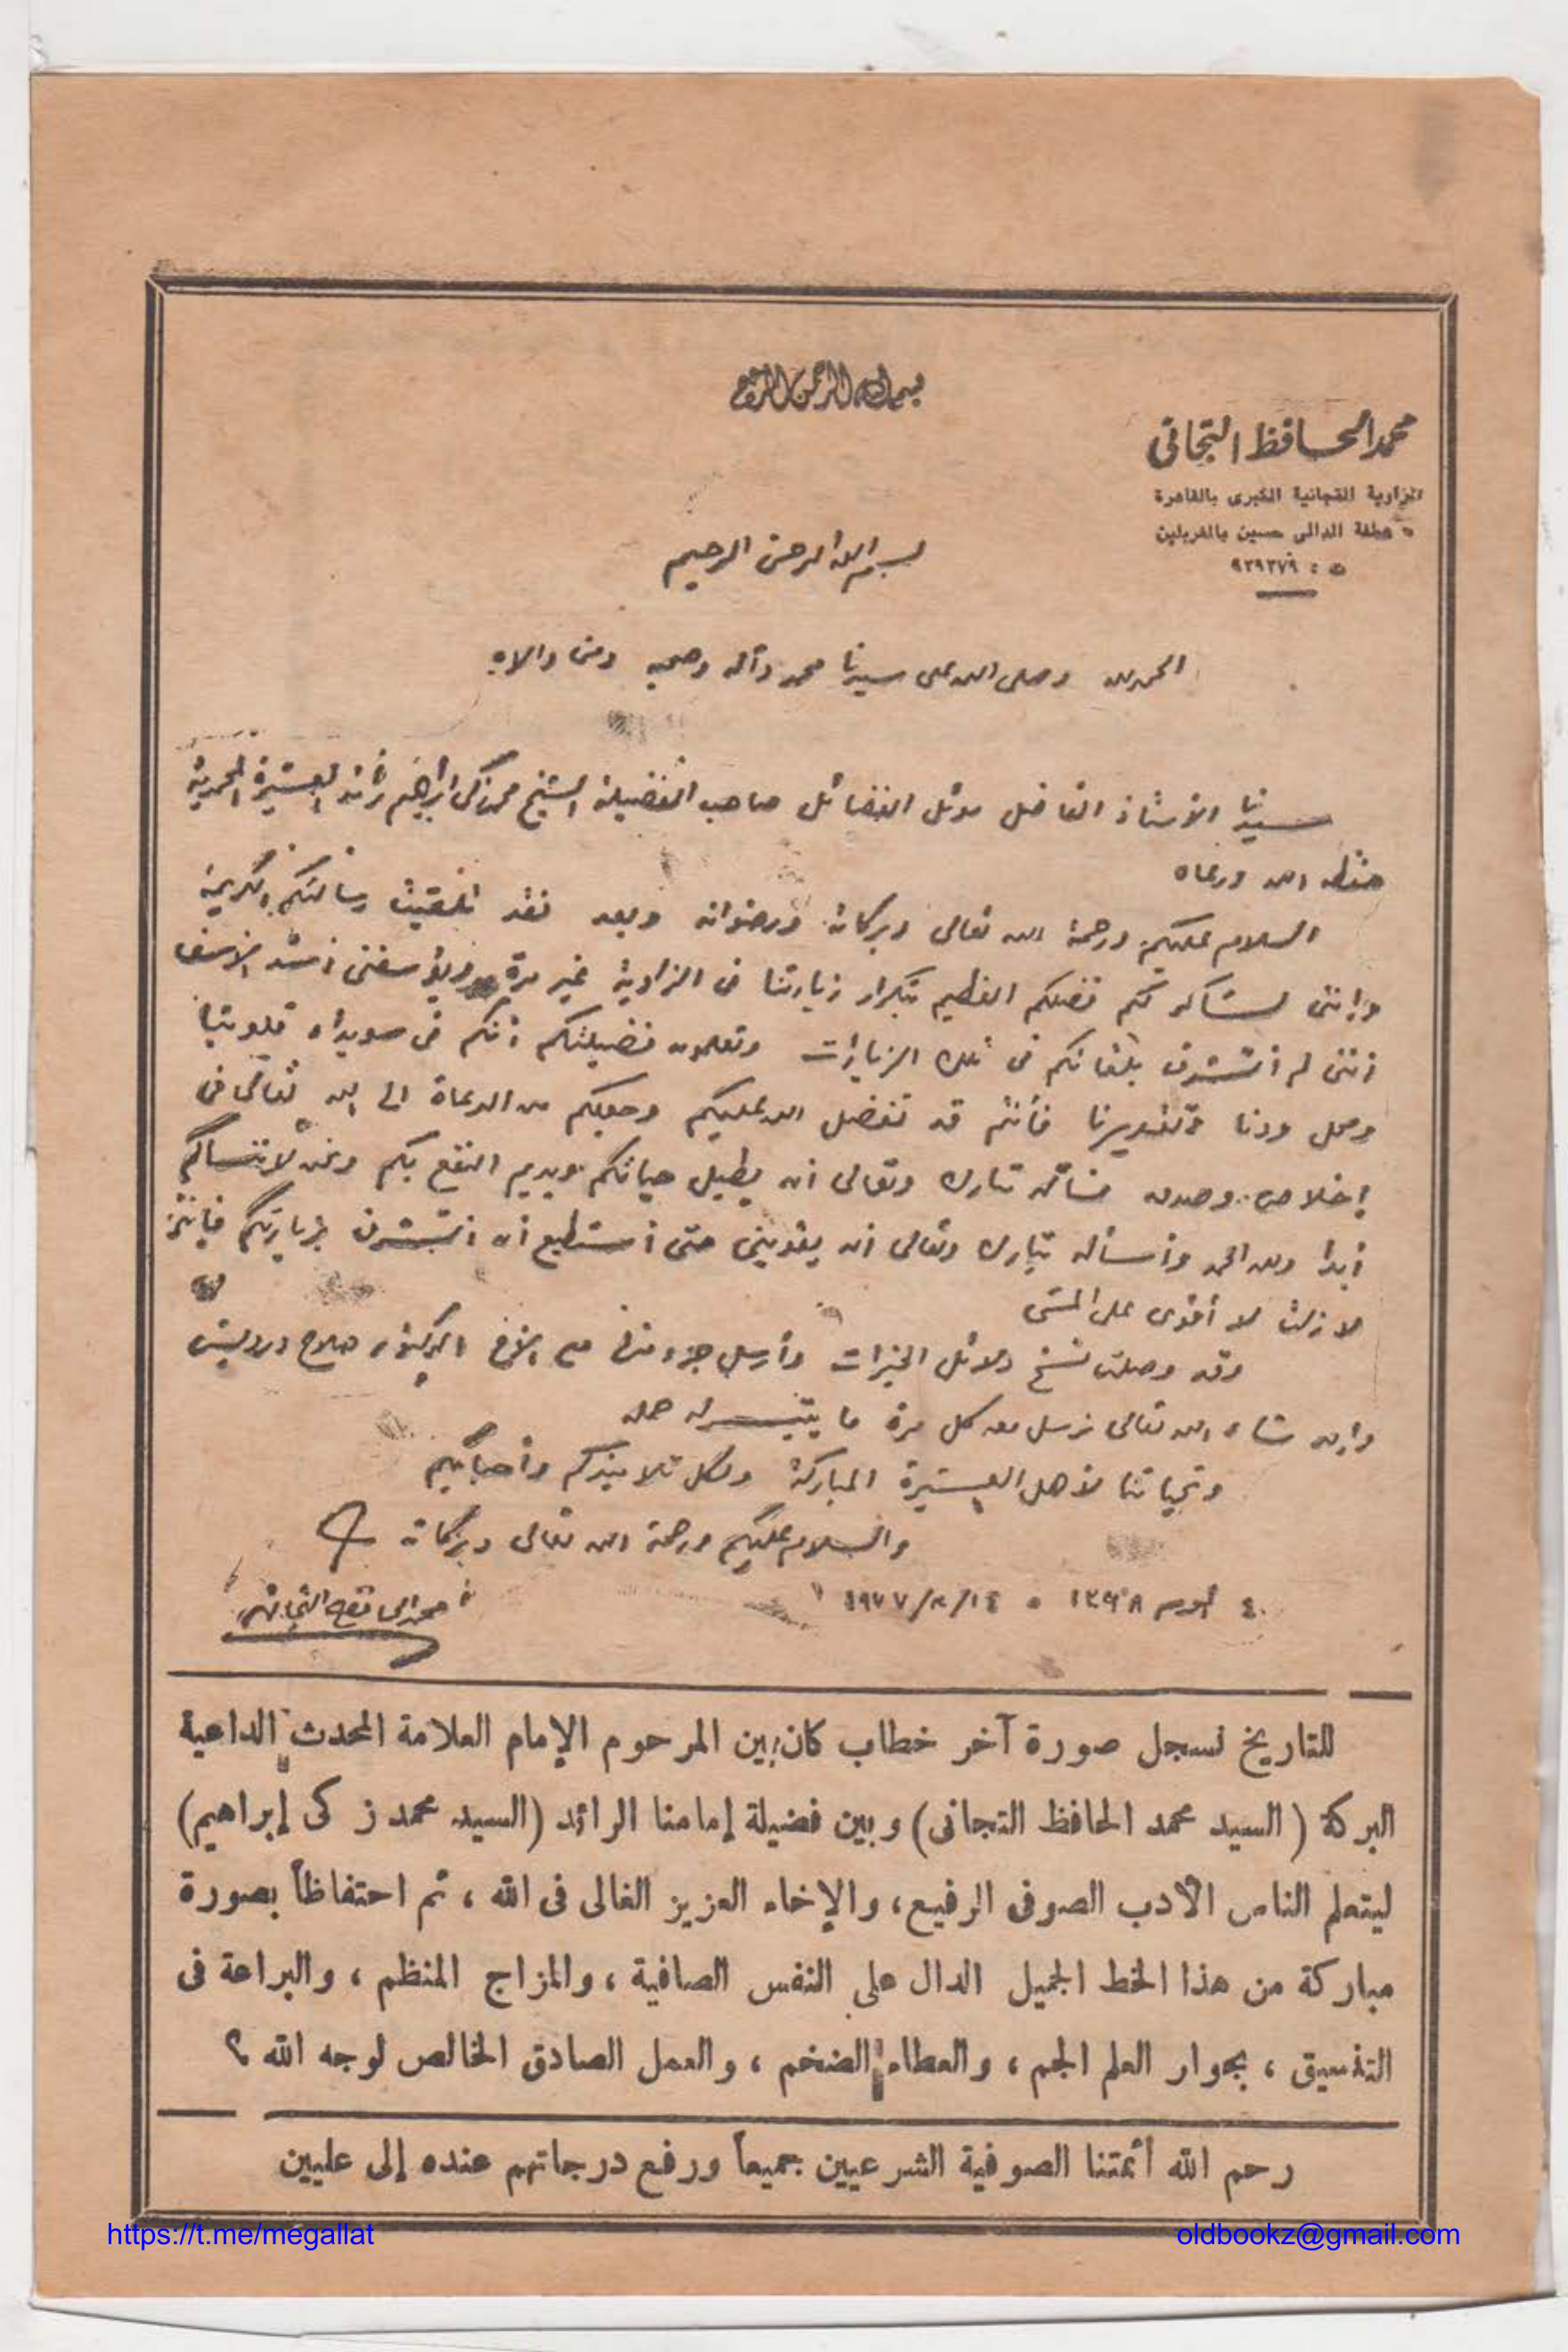 بسم الله الرحمن الرحيم
محمد الحافظ التجانى
الزاوية التجانية الكبرى بالقاهرة
٥ عطفة الدالى حسين بالمغربلين
ت : ٩٢٩٣٧٩
بسم الله الرحمن الرحيم
الحمد لله وصلى الله على سيدنا محمد وآله وصحبه ومن والاه
سيدنا الأستاذ الفاضل موئل الفضائل صاحب الفضيلة الشيخ محمد زكى ابراهيم رائد العشيرة المحمدية
حفظه الله ورعاه
السلام عليكم ورحمة الله تعالى وبركاته ورضوانه وبعد فقد تلقيت رسالتكم الكريمة
وإننى لشاكر لكم فضلكم العظيم بتكرار زيارتنا فى الزاوية غير مرة ويؤسفنى أشد الأسف
أننى لم أتشرف بلقائكم فى تلك الزيارات وتعلمون فضيلتكم أنكم فى سويداء قلوبنا
ومحل ودنا وتقديرنا فأنتم قد تفضل الله عليكم وجعلكم من الدعاة الى الله تعالى فى
إخلاص وصدق فنسأله تبارك وتعالى أن يطيل حياتكم ويديم النفع بكم ونحن لا ننساكم
أبدا ولله الحمد وأسأله تبارك وتعالى أن يقوينى حتى أستطيع أن أتشرف بزيارتكم فإننى
لا زلت لا أقوى على المشى
وقد وصلت نسخ دلائل الخيرات وأرسل جزء منها مع الأخ الدكتور صلاح درويش
وإن شاء الله تعالى نرسل معه كل مرة ما يتيسر له حمله
وتحياتنا لأهل العشيرة المباركة ولكل تلاميذكم وأحبابكم
والسلام عليكم ورحمة الله تعالى وبركاته
٤ ١٣٩٨ ١٩٧٧/٨/١٤
محمد الحافظ التجانى
للتاريخ نسجل صورة آخر خطاب كان بين المرحوم الإمام العلامة المحدث الداعية
البركة (السيد محمد الحافظ التجانى) وبين فضيلة إمامنا الرائد (السيد محمد زكى إبراهيم)
ليتعلم الناس الأدب الصوفى الرفيع، والإخاء العزيز الغالى فى الله ، ثم احتفاظاً بصورة
مباركة من هذا الخط الجميل الدال على النفس الصافية ، والمزاج المنظم ، والبراعة فى
التنسيق ، بجوار العلم الجم ، والعطاء الضخم ، والعمل الصادق الخالص لوجه الله ؟
رحم الله أئمتنا الصوفية الشرعيين جميعاً ورفع درجاتهم عنده إلى عليين
https://t.me/megallat
oldbookz@gmail.com